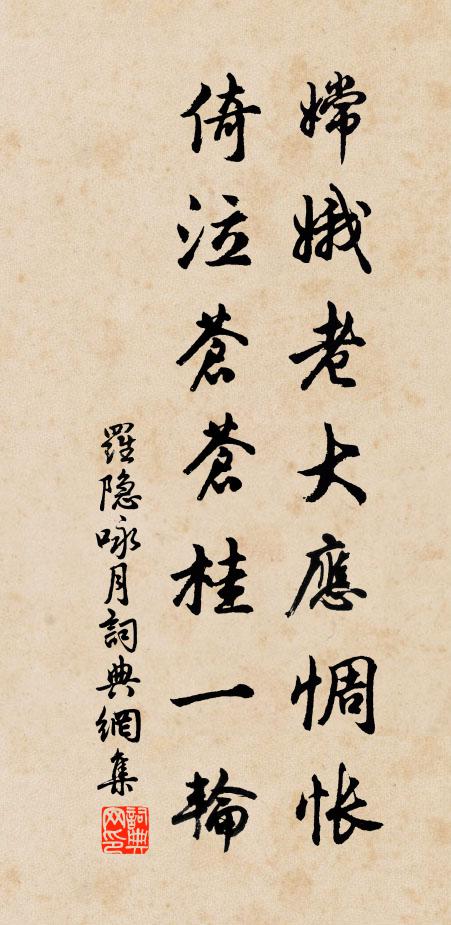 嫦娥老大應惆悵
倚泣蒼蒼桂一輪
羅隐咏月詞典網集
詞典网印